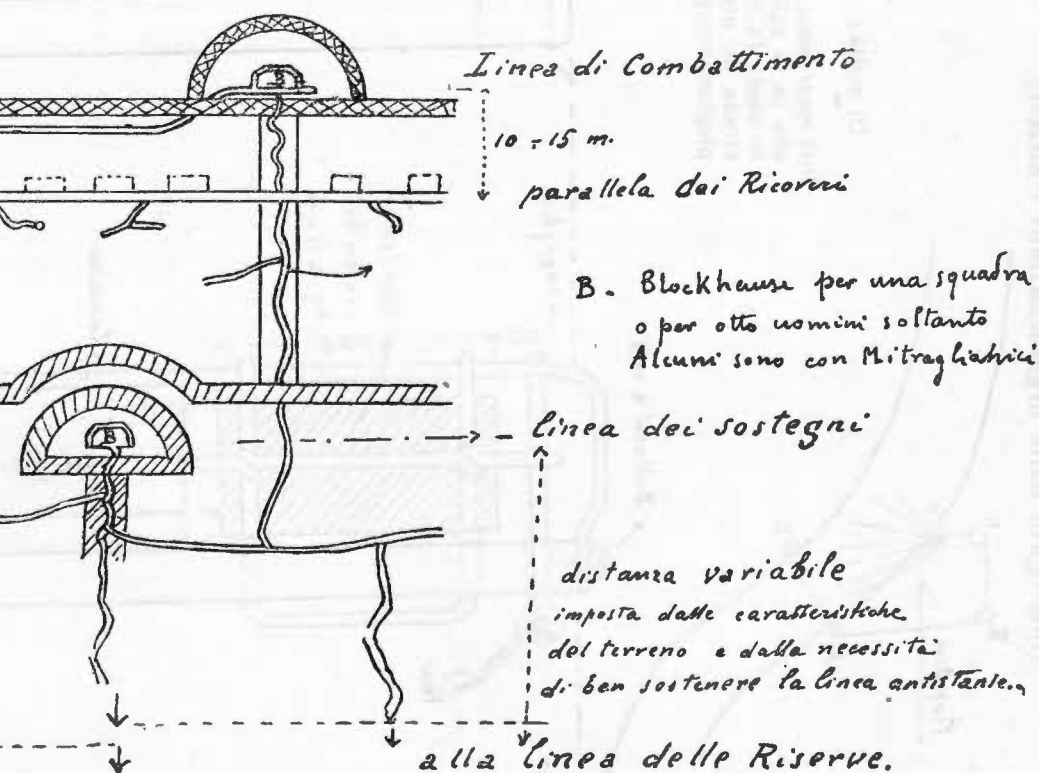 Linea di Combattimento
10 ÷ 15 m.
parallela dai Ricoveri
B. Blockhause per una squadra
o per otto uomini soltanto
Alcuni sono con Mitragliatrici
B
linea dei sostegni
B
distanza variabile
imposta dalle caratteristiche
del terreno e dalla necessità
di ben sostenere la linea antistante.
alla linea delle Riserve.